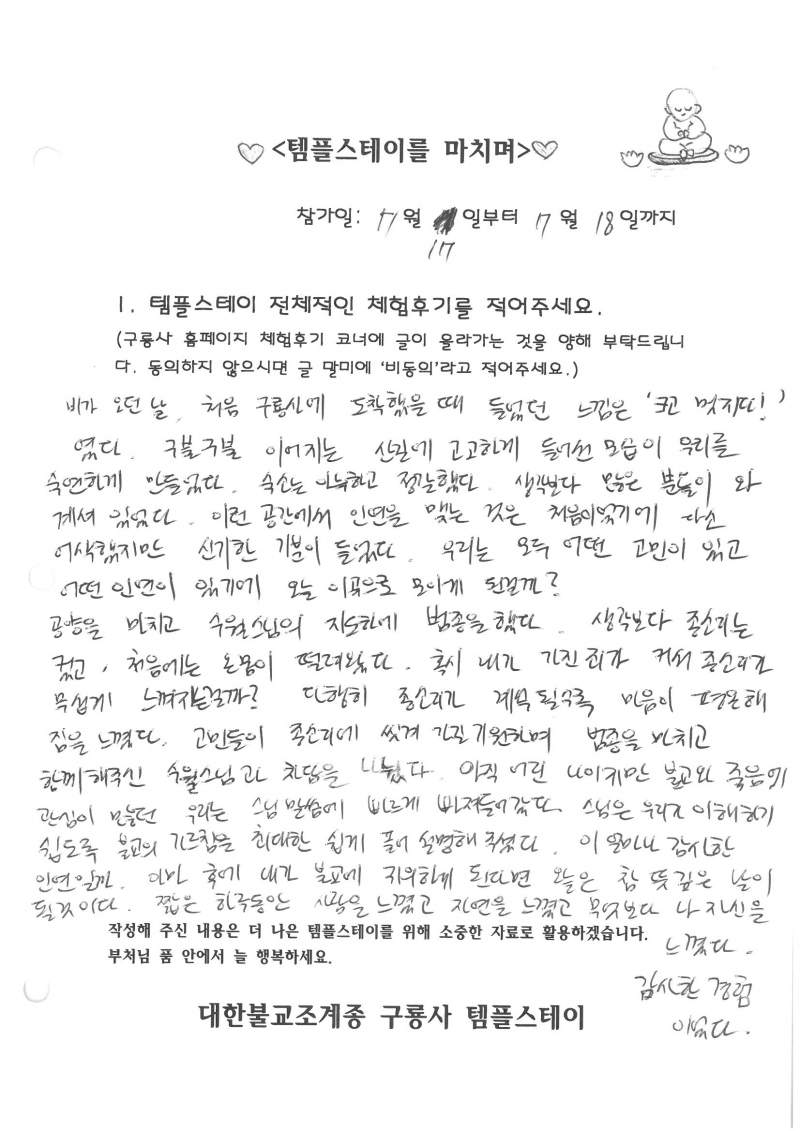 <템플스테이를 마치며>
참가일: 7월 일부터 7월 18일까지
17
1. 템플스테이 전체적인 체험후기를 적어주세요.
(구룡사 홈페이지 체험후기 코너에 글이 올라가는 것을 양해 부탁드립니
다. 동의하지 않으시면 글 말미에 '비동의'라고 적어주세요.)
비가 오던 날, 처음 구룡사에 도착했을 때 들었던 느낌은 '크고 멋지다!'
였다. 구불구불 이어지는 산길에 고고하게 들어선 모습이 우리를
숙연하게 만들었다. 숙소는 아늑하고 정갈했다. 생각보다 많은 분들이 와
계셔 있었다. 이런 공간에서 인연을 맺는 것은 처음이었기에 다소
어색했지만 신기한 기분이 들었다. 우리는 모두 어떤 고민이 있고
어떤 인연이 있기에 오늘 이곳으로 모이게 된걸까?
공양을 마치고 수월스님의 지도하에 범종을 했다. 생각보다 종소리는
컸고, 처음에는 온몸이 떨려왔다. 혹시 내가 가진 죄가 커서 종소리가
무섭게 느껴지는걸까? 다행히 종소리가 계속 될수록 마음이 평온해
짐을 느꼈다. 고민들이 종소리에 씻겨 가길 기원하며 범종을 마치고
함께해주신 수월스님과 차담을 나눴다. 아직 어린 나이지만 불교와 죽음에
관심이 많던 우리는 스님 말씀에 빠르게 빠져들어갔다. 스님은 우리가 이해하기
쉽도록 불교의 가르침을 최대한 쉽게 풀어 설명해 주셨다. 이 얼마나 감사한
인연일까. 아마 훗에 내가 불교에 귀의하게 된다면 오늘은 참 뜻깊은 날이
될것이다. 짧은 하루동안 사람을 느꼈고 자연을 느꼈고 무엇보다 나 자신을
느꼈다.
감사한 경험
이었다.
작성해 주신 내용은 더 나은 템플스테이를 위해 소중한 자료로 활용하겠습니다.
부처님 품 안에서 늘 행복하세요.
대한불교조계종 구룡사 템플스테이